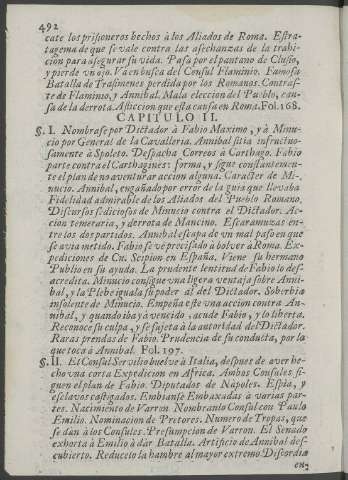 492
cate los prisioneros hechos à los Aliados de Roma. Estra-
tagema de que se vale contra las asechanzas de la trahi-
cion para asegurar su vida. Pasa por el pantano de Clusio,
y pierde un ojo. Và en busca del Consul Flaminio. Famosa
Batalla de Trasimenes perdida por los Romanos. Contras-
te de Flaminio, y Annibal. Mala eleccion del Pueblo, cau-
sa de la derrota. Afliccion que esta causa en Roma. Fol. 168.
CAPITULO II.
§. I. Nombrase por Dictador à Fabio Maximo, y à Minu-
cio por General de la Cavalleria. Annibal sitia infructuo-
samente à Spoleto. Despacha Correos à Carthago. Fabio
parte contra el Carthaginés: forma, y sigue constantemen-
te el plan de no aventurar accion alguna. Caracter de Mi-
nucio. Annibal, engañado por error de la guia que llevaba
Fidelidad admirable de los Aliados del Pueblo Romano.
Discursos sediciosos de Minucio contra el Dictador. Ac-
cion temeraria, y derrota de Mancino. Escaramuzas en-
tre los dos partidos. Annibal escapa de un mal paso en que
se avia metido. Fabio se vè precisado à bolver à Roma. Ex-
pediciones de Cn. Scipion en España. Viene su hermano
Publio en su ayuda. La prudente lentitud de Fabio lo des-
acredita. Minucio consigue una ligera ventaja sobre Anni-
bal, y la Plebe iguala su poder al del Dictador. Soberbia
insolente de Minucio. Empeña este una accion contra An-
nibal, y quando iba yà vencido, acude Fabio, y lo liberta.
Reconoce su culpa, y se sujeta à la autoridad del Dictador.
Raras prendas de Fabio. Prudencia de su conducta, por lo
que toca à Annibal. Fol. 197.
§. II. El Consul Servilio buelve à Italia, despues de aver he-
cho una corta Expedicion en Africa. Ambos Consules si-
guen el plan de Fabio. Diputados de Napoles. Espia, y
esclavos castigados. Embianse Embaxadas à varias par-
tes. Nacimiento de Varron Nombranlo Consul con Paulo
Emilio. Nominacion de Pretores. Numero de Tropas, que
se dàn à los Consules. Presumpcion de Varron. El Senado
exhorta à Emilio à dàr Batalla. Artificio de Annibal des-
cubierto. Reducelo la hambre al mayor extremo. Discordia
en-